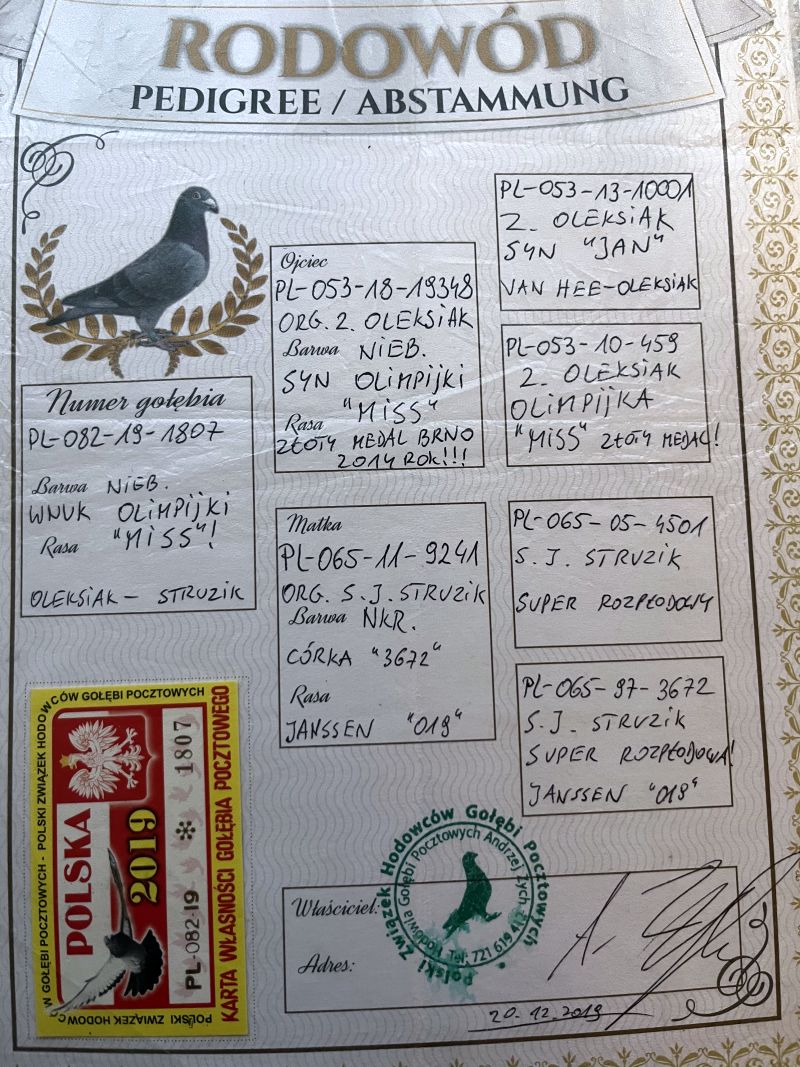 RODOWÓD
PEDIGREE / ABSTAMMUNG
Numer gołębia
PL-082-19-1807
Barwa NIEB.
WNUK OLIMPIJKI
Rasa "MISS"!
OLEKSIAK - STRUZIK
Ojciec
PL-053-18-19348
ORG. Z. OLEKSIAK
Barwa NIEB.
SYN OLIMPIJKI
Rasa "MISS"
ZŁOTY MEDAL BRNO
2014 ROK!!!
Matka
PL-065-11-9241
ORG. S.J. STRUZIK
Barwa NKR.
CÓRKA "3672"
Rasa
JANSSEN "019"
PL-053-13-10001
Z. OLEKSIAK
SYN "JAN"
VAN HEE-OLEKSIAK
PL-053-10-459
Z. OLEKSIAK
OLIMPIJKA
"MISS" ZŁOTY MEDAL!
PL-065-05-4501
S.J. STRUZIK
SUPER ROZPŁODOWY
PL-065-97-3672
S.J. STRUZIK
SUPER ROZPŁODOWA!
JANSSEN "019"
POLSKI ZWIĄZEK HODOWCÓW GOŁĘBI POCZTOWYCH
POLSKA
2019
PL-082-19 * 1807
KARTA WŁASNOŚCI GOŁĘBIA POCZTOWEGO
Polski Związek Hodowców Gołębi Pocztowych
Hodowla Gołębi Pocztowych Andrzej Zych
Tel: 721 619
Właściciel:
Adres:
20.12.2019